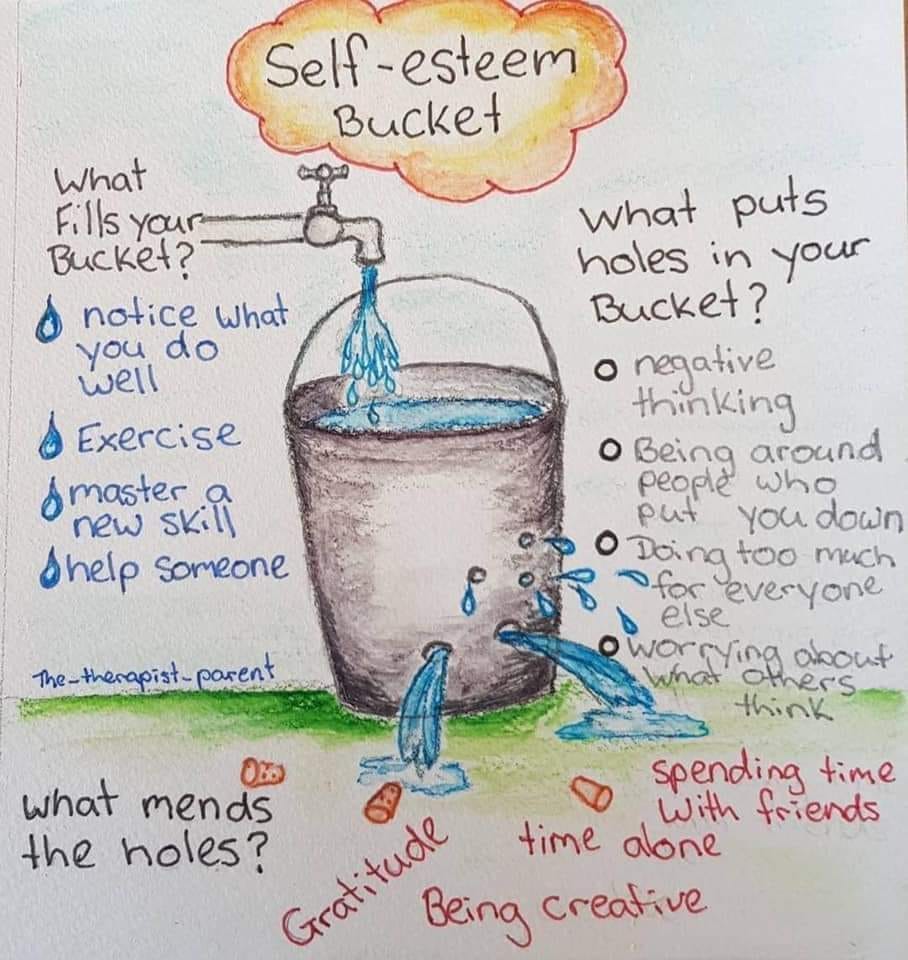 Self-esteem
Bucket
What
Fills your
Bucket?
notice what
you do
well
Exercise
master a
new skill
help someone
The-therapist-parent
What puts
holes in your
Bucket?
negative
thinking
Being around
people who
put you down
Doing too much
for everyone
else
worrying about
what others
think
What mends
the holes?
Gratitude
Being creative
time alone
spending time
with friends